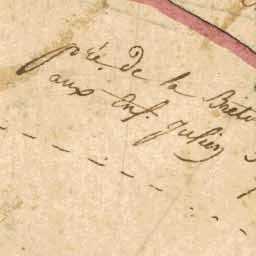 pré de la Bret
aux Enf. Julien